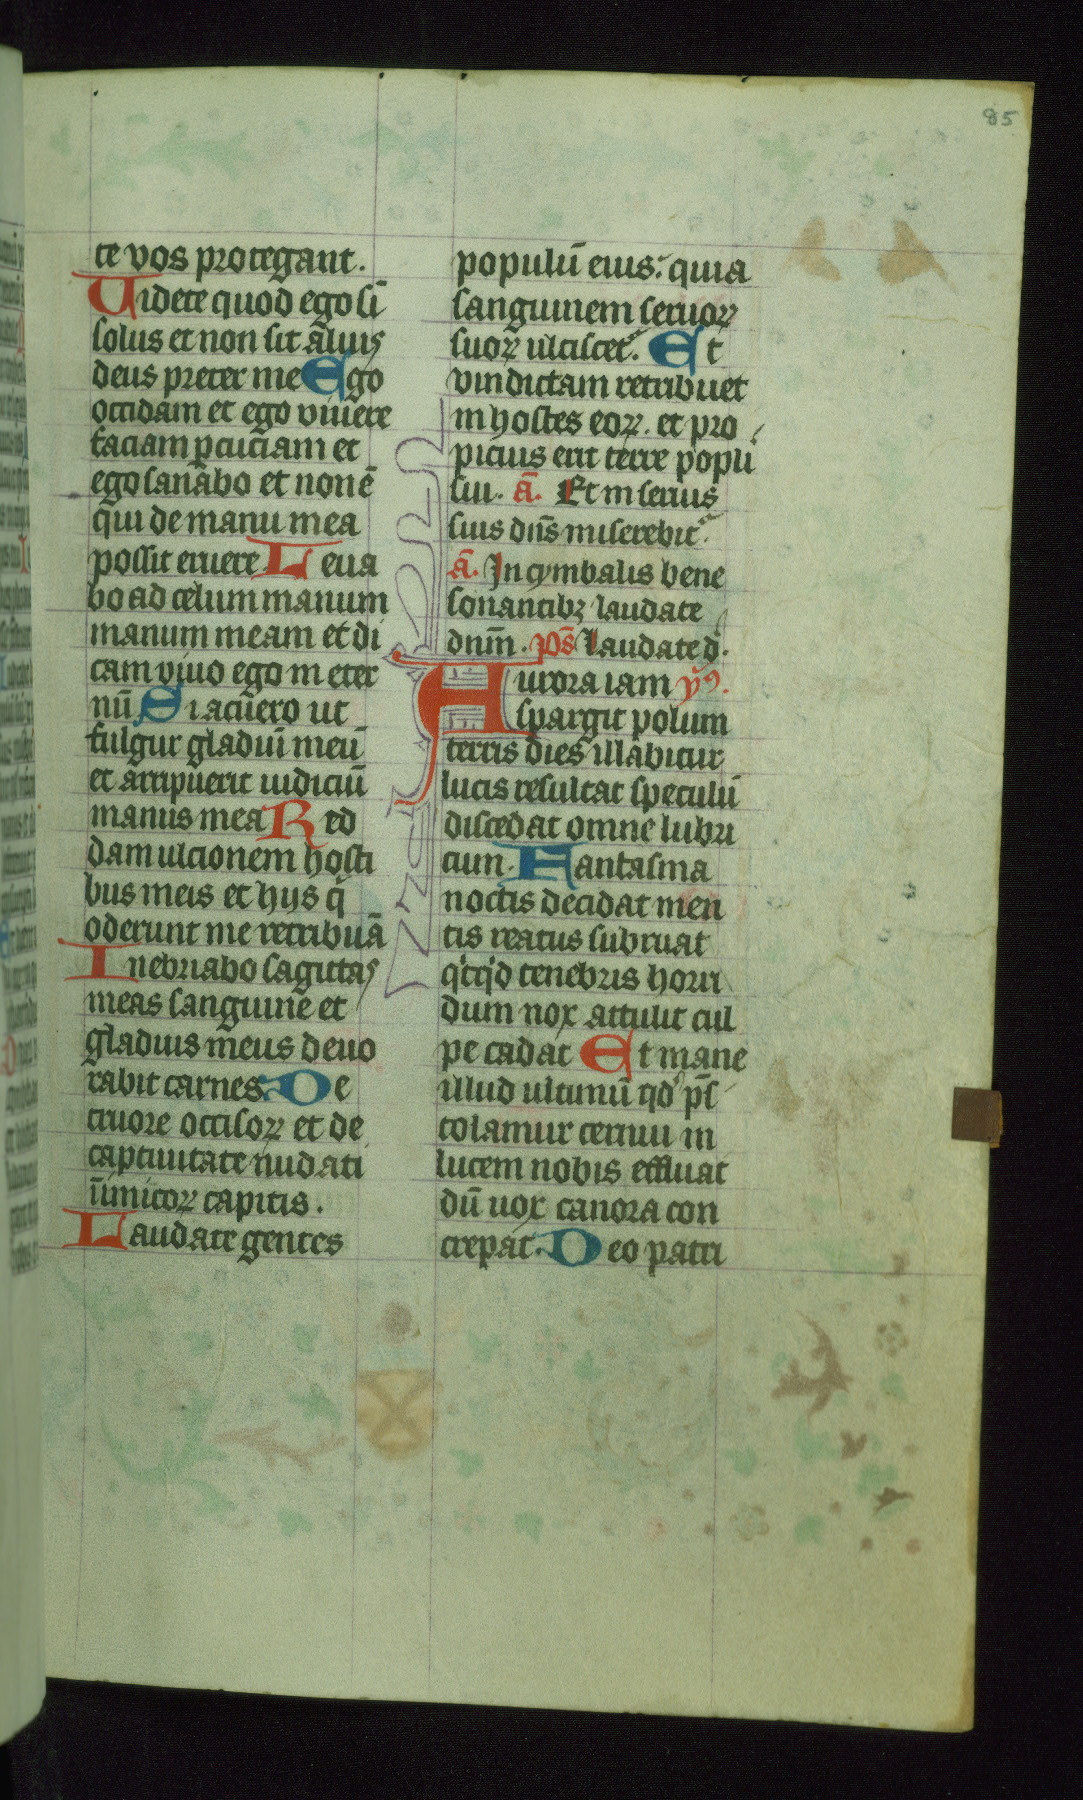 85
te vos protegant.
Uidete quod ego sū
solus et non sit alius
deus preter me Ego
occidam et ego viuere
faciam pcuciam et
ego sanabo et non ē
qui de manu mea
possit eruere Leua
bo ad celum manum
manum meam et di
cam viuo ego in eter
nū Si acuero ut
fulgur gladiū meū
et arripuerit iudiciū
manus mea Red
dam ulcionem hosti
bus meis et hijs q
oderunt me retribuā
Inebriabo sagittas
meas sanguine et
gladius meus deuo
rabit carnes. De
cruore occisoꝝ et de
captiuitate nudati
inimicoꝝ capitis.
Laudate gentes
populū eius: quia
sanguinem seruoꝝ
suoꝝ ulciscet. Et
vindictam retribuet
in hostes eoꝝ. et pro
picius erit terre popli
sui. ā. Et in seruis
suis dn̄s miserebit.
ā. In cymbalis bene
sonantibꝫ laudate
dnm̄. ps̄ Laudate d.
Aurora iam yꝰ.
spargit polum
terris dies illabitur
lucis resultat speculū
discedat omne lubri
cun. Fantasma
noctis decidat men
tis reatus subruat
qͥcqͥd tenebris horri
dum nox attulit cul
pe cadat Et mane
illud ultimū qd ps̄
tolamur cernui in
lucem nobis effluat
dū uox canora con
crepat. Deo patri